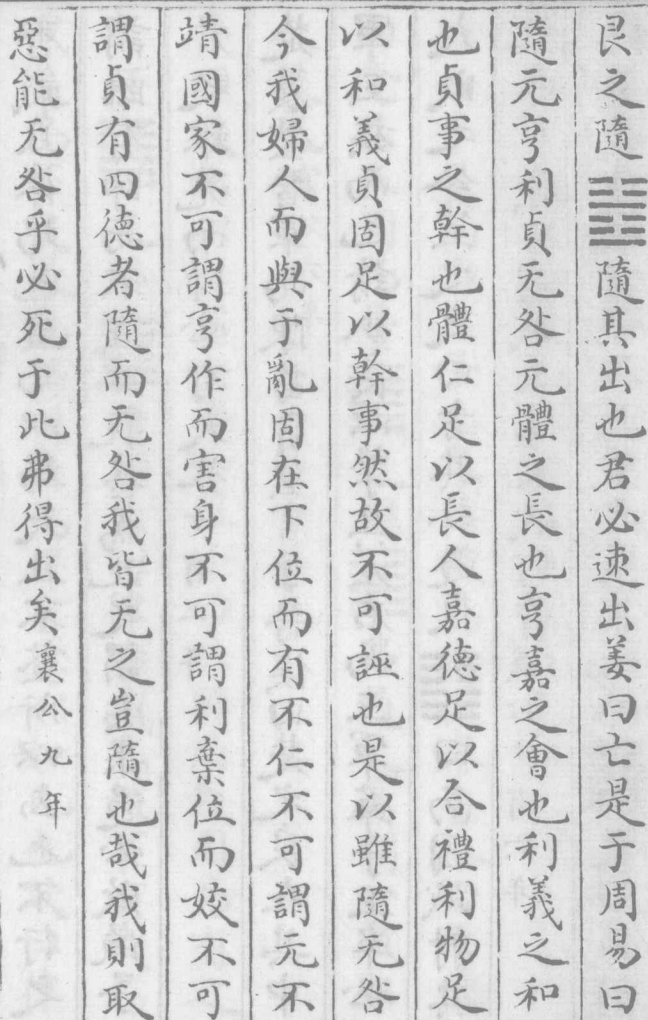 艮之隨䷐隨其出也君必速出姜曰亡是于周易曰
隨元亨利貞无咎元體之長也亨嘉之會也利義之和
也貞事之幹也體仁足以長人嘉德足以合禮利物足
以和義貞固足以幹事然故不可誣也是以雖隨无咎
今我婦人而與于亂固在下位而有不仁不可謂元不
靖國家不可謂亨作而害身不可謂利棄位而姣不可
謂貞有四德者隨而无咎我皆无之豈隨也哉我則取
惡能无咎乎必死于此弗得出矣襄公九年